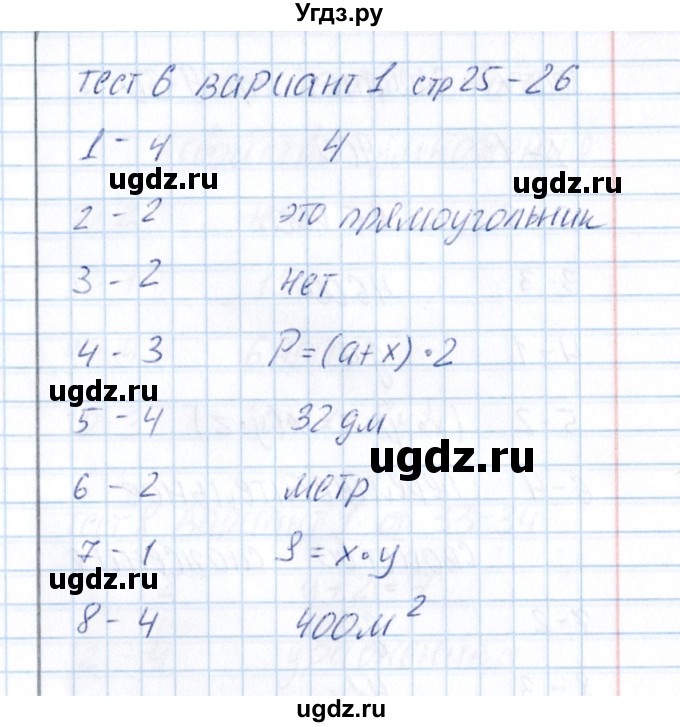 Угдз.ру
тест 6 вариант 1 стр 25-26
1 - 4 4
ugdz.ru ugdz.ru
2 - 2 это прямоугольник
3 - 2 нет
4 - 3 P=(a+x)•2
ugdz.ru
5 - 4 32 дм
ugdz.ru
6 - 2 метр
7 - 1 S=x•y
ugdz.ru
8 - 4 400м²
ugdz.ru